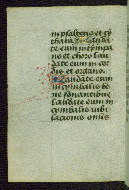 in psalterio et cy
thara Laudate
eum in timpa
no et choro lau
date eum in cor
dis et organo
Laudate eum
in cimbalis be
ne sonantibus
laudate eum in
cimbalis iubi
lacionis omnis